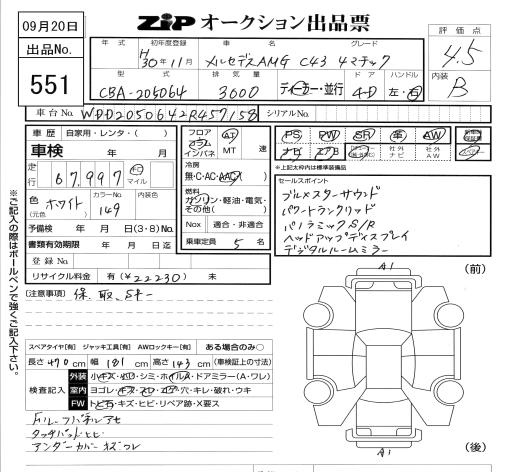 09月20日
出品No.
551
ZIP オークション出品票
評価点
4.5
内装
B
年式 初年度登録 車名 グレード
H 30年11月 メルセデスAMG C43 4マチック
型式 排気量 ドア ハンドル
CBA-205064 3000 ディーラー・並行 4D 左・右
車台No. WDD2050642R457158
シリアルNo.
車歴 自家用・レンタ・( )
車検 年 月
走行 67,997 km マイル
色 (元色) ホワイト カラーNo. 149 内装色
予備検 年 月 日(3・8)No.
書類有効期限 年 月 日迄
登録No
リサイクル料金 有(¥22230) 未
フロア コラム インパネ AT MT 速
冷房
無・C・AC・AAC
燃料
ガソリン・軽油・電気・その他( )
Nox 適合・非適合
乗車定員 5 名
PS PW SR 革 AW
ナビ エアB 社外ナビ 社外AW
*上記太枠内は標準装備品
セールスポイント
ブルメスターサウンド
パワートランクリッド
パノラミックS/R
ヘッドアップディスプレイ
デジタルルームミラー
[注意事項] 保、取、Sキー
スペアタイヤ[有] ジャッキ工具[有] AWロックキー[有] ある場合のみ○
長さ 470 cm 幅 181 cm 高さ 143 cm (車検証上の寸法)
検査記入
外装 小キズ・凹・シミ・ホイルキズ・ドアミラー(A・ワレ)
室内 ヨゴレ・キズ・スレ・コゲ・穴・キレ・破れ・ウキ
FW トビ石・キズ・ヒビ・リペア跡・X要ス
ドルーフパネルアセ
タッチパッドヒビ
アンダーカバーキズワレ
A1
(前)
A1
(後)
※ご記入の際はボールペンで強くご記入下さい。